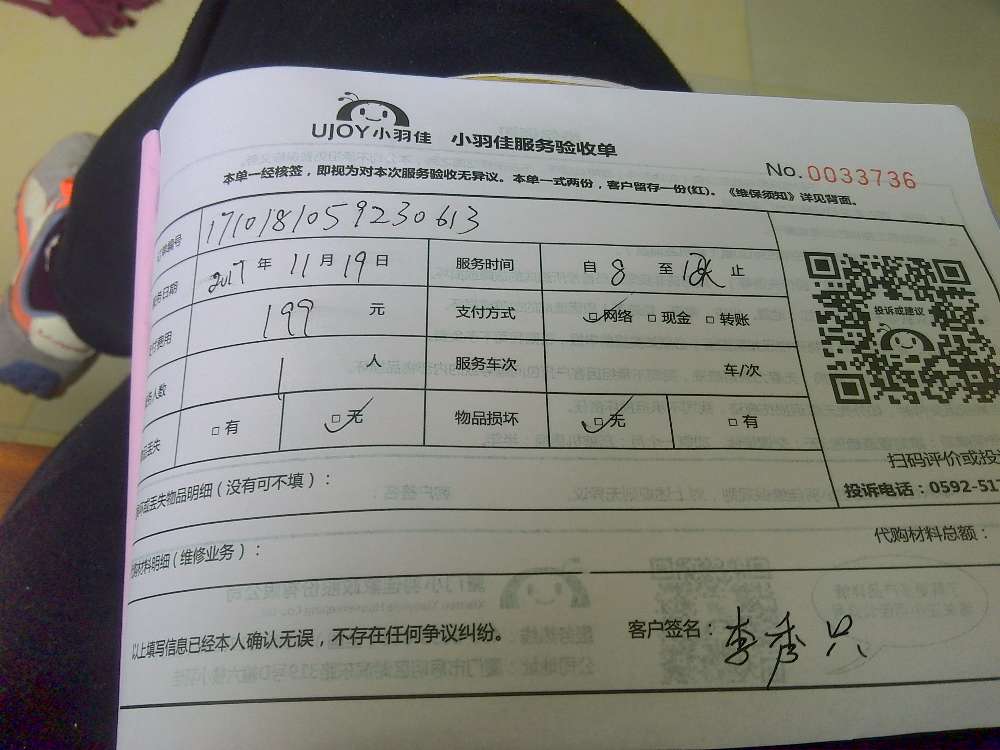 UJOY小羽佳 小羽佳服务验收单
No.0033736
本单一经核签，即视为对本次服务验收无异议。本单一式两份，客户留存一份(红)。《维保须知》详见背面。
订单编号 1710181059230613
服务日期 2017 年 11 月 19 日 服务时间 自 8 至 止
支付费用 199 元 支付方式 □网络 □现金 □转账
人数 1 人 服务车次 车/次
丢失 □有 □无 物品损坏 □无 □有
投诉或建议
扫码评价或投
投诉电话：0592-517
损坏或丢失物品明细（没有可不填）：
代购材料明细（维修业务）：
代购材料总额：
以上填写信息已经本人确认无误，不存在任何争议纠纷。
客户签名：李秀只